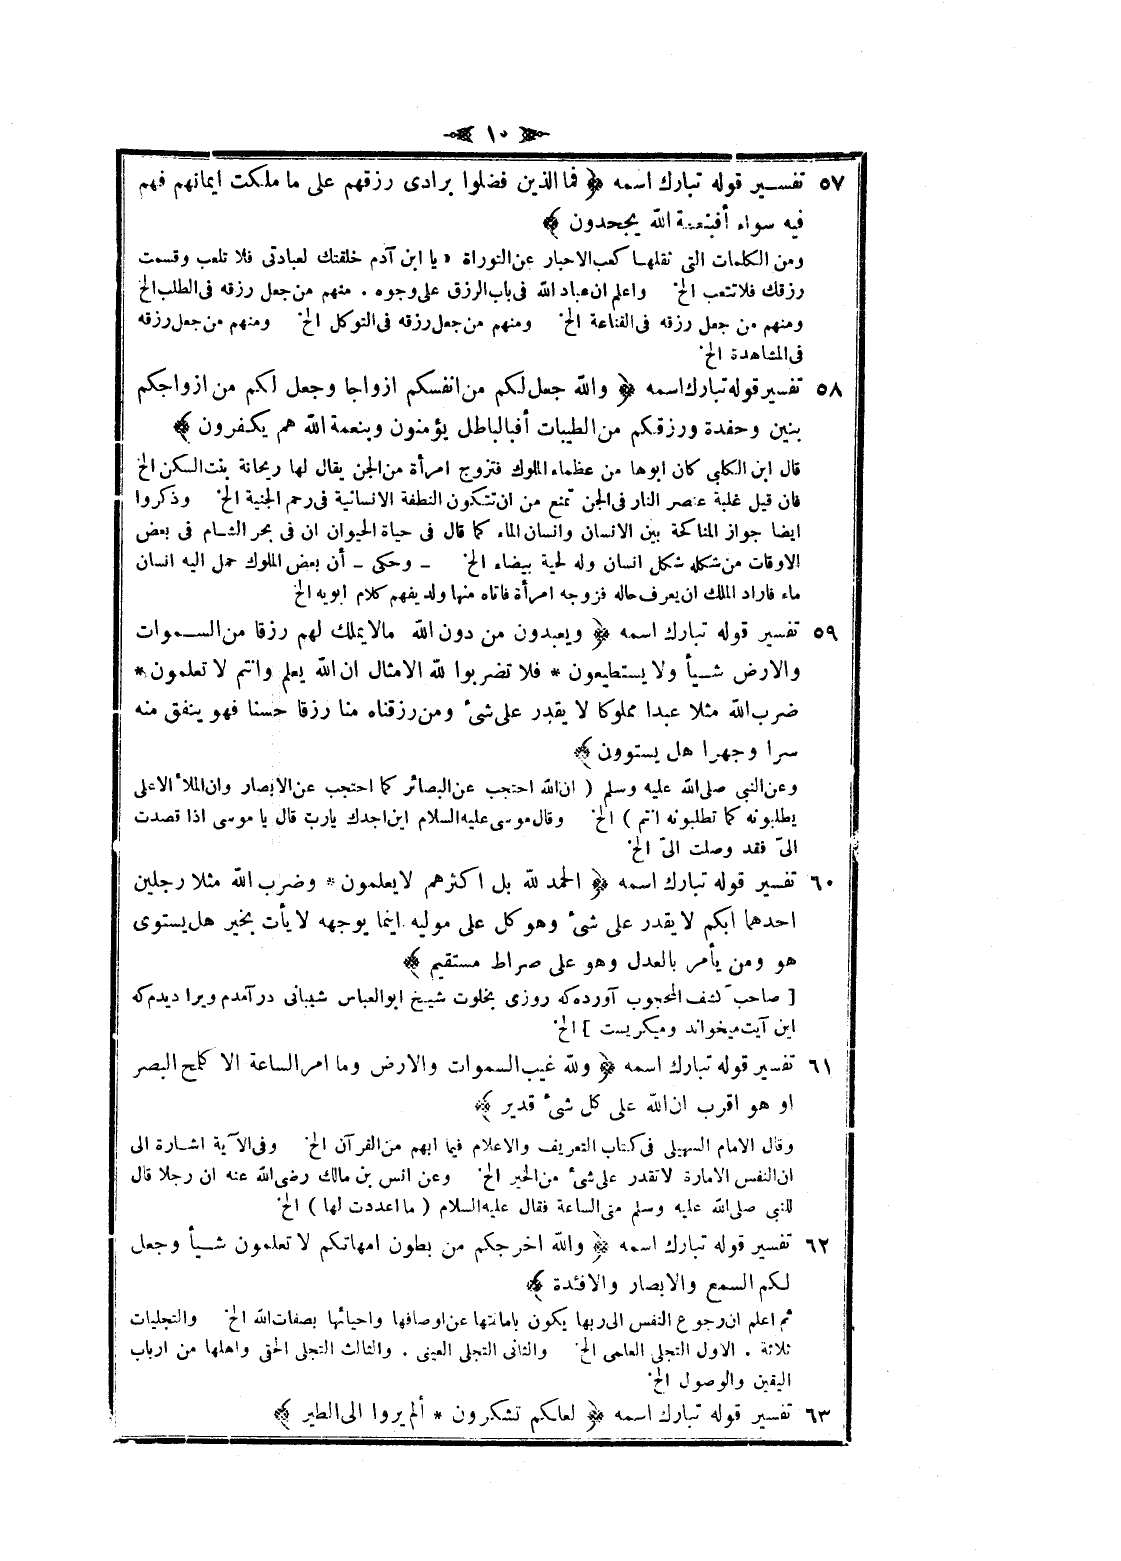 ١٠
٥٧ تفسير قوله تبارك اسمه ﴿ فما الذين فضلوا برادى رزقهم على ما ملكت ايمانهم فهم
فيه سواء أفبنعمة الله يجحدون ﴾
ومن الكلمات التى نقلها كعب الاحبار عن التوراة « يا ابن آدم خلقتك لعبادتى فلا تلعب وقسمت
رزقك فلا تتعب الخ واعلم ان عباد الله فى باب الرزق على وجوه . منهم من جعل رزقه فى الطلب الخ
ومنهم من جعل رزقه فى القناعة الخ ومنهم من جعل رزقه فى التوكل الخ ومنهم من جعل رزقه
فى المشاهدة الخ
٥٨ تفسير قوله تبارك اسمه ﴿ والله جعل لكم من انفسكم ازواجا وجعل لكم من ازواجكم
بنين وحفدة ورزقكم من الطيبات أفبالباطل يؤمنون وبنعمة الله هم يكفرون ﴾
قال ابن الكلبى كان ابوها من عظماء الملوك فتزوج امرأة من الجن يقال لها ريحانة بنت السكن الخ
فان قيل غلبة عنصر النار فى الجن تمنع من ان تتكون النطفة الانسانية فى رحم الجنية الخ وذكروا
ايضا جواز المناكحة بين الانسان وانسان الماء كما قال فى حياة الحيوان ان فى بحر الشام فى بعض
الاوقات من شكله شكل انسان وله لحية بيضاء الخ _ وحكى _ أن بعض الملوك حمل اليه انسان
ماء فاراد الملك ان يعرف حاله فزوجه امرأة فاتاه منها ولد يفهم كلام ابويه الخ
٥٩ تفسير قوله تبارك اسمه ﴿ ويعبدون من دون الله مالا يملك لهم رزقا من السموات
والارض شيأ ولا يستطيعون * فلا تضربوا لله الامثال ان الله يعلم وانتم لا تعلمون *
ضرب الله مثلا عبدا مملوكا لا يقدر على شئ ومن رزقناه منا رزقا حسنا فهو ينفق منه
سرا وجهرا هل يستوون ﴾
وعن النبى صلى الله عليه وسلم ( ان الله احتجب عن البصائر كما احتجب عن الابصار وان الملأ الاعلى
يطلبونه كما تطلبونه انتم ) الخ وقال موسى عليه السلام اين اجدك يارب قال يا موسى اذا قصدت
الىّ فقد وصلت الىّ الخ
٦٠ تفسير قوله تبارك اسمه ﴿ الحمد لله بل اكثرهم لا يعلمون * وضرب الله مثلا رجلين
احدهما ابكم لا يقدر على شئ وهو كل على موليه اينما يوجهه لا يأت بخير هل يستوى
هو ومن يأمر بالعدل وهو على صراط مستقيم ﴾
[ صاحب كشف المحجوب آورده كه روزى بخلوت شيخ ابو العباس شيبانى در آمدم ويرا ديدم كه
اين آيت ميخواند وميكريست ] الخ
٦١ تفسير قوله تبارك اسمه ﴿ ولله غيب السموات والارض وما امر الساعة الا كلمح البصر
او هو اقرب ان الله على كل شئ قدير ﴾
وقال الامام السهيلى فى كتاب التعريف والاعلام فيما ابهم من القرآن الخ وفى الآية اشارة الى
ان النفس الامارة لا تقدر على شئ من الخير الخ وعن انس بن مالك رضى الله عنه ان رجلا قال
للنبى صلى الله عليه وسلم متى الساعة فقال عليه السلام ( ما اعددت لها ) الخ
٦٢ تفسير قوله تبارك اسمه ﴿ والله اخرجكم من بطون امهاتكم لا تعلمون شيأ وجعل
لكم السمع والابصار والافئدة ﴾
ثم اعلم ان رجوع النفس الى ربها يكون باماتتها عن اوصافها واحيائها بصفات الله الخ والتجليات
ثلاثة . الاول التجلى العلمى الخ والثانى التجلى العينى . والثالث التجلى الحقى واهلها من ارباب
اليقين والوصول الخ
٦٣ تفسير قوله تبارك اسمه ﴿ لعلكم تشكرون * ألم يروا الى الطير ﴾